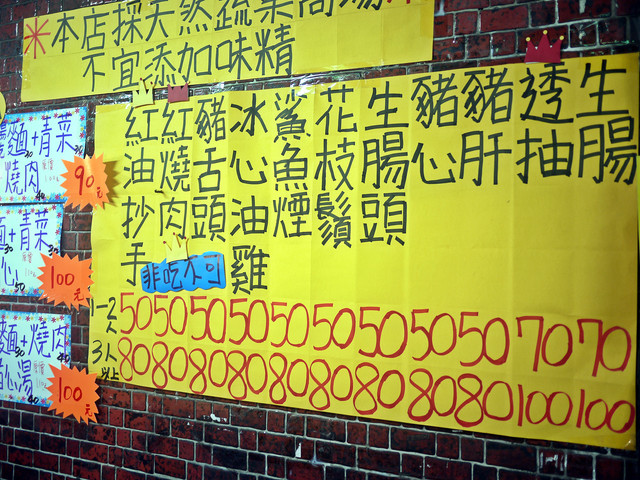 *本店採天然蔬菜高湯
不宜添加味精
紅油抄手
紅燒肉
非吃不可
豬舌頭
冰心油雞
鯊魚煙
花枝鬚
生腸頭
豬心
豬肝
透抽
生腸
一~2人 50 50 50 50 50 50 50 50 50 70 70
3人以上 80 80 80 80 80 80 80 80 80 100 100
麵+青菜
燒肉
90元
+青菜
心
100元
麵+燒肉
心湯
100元